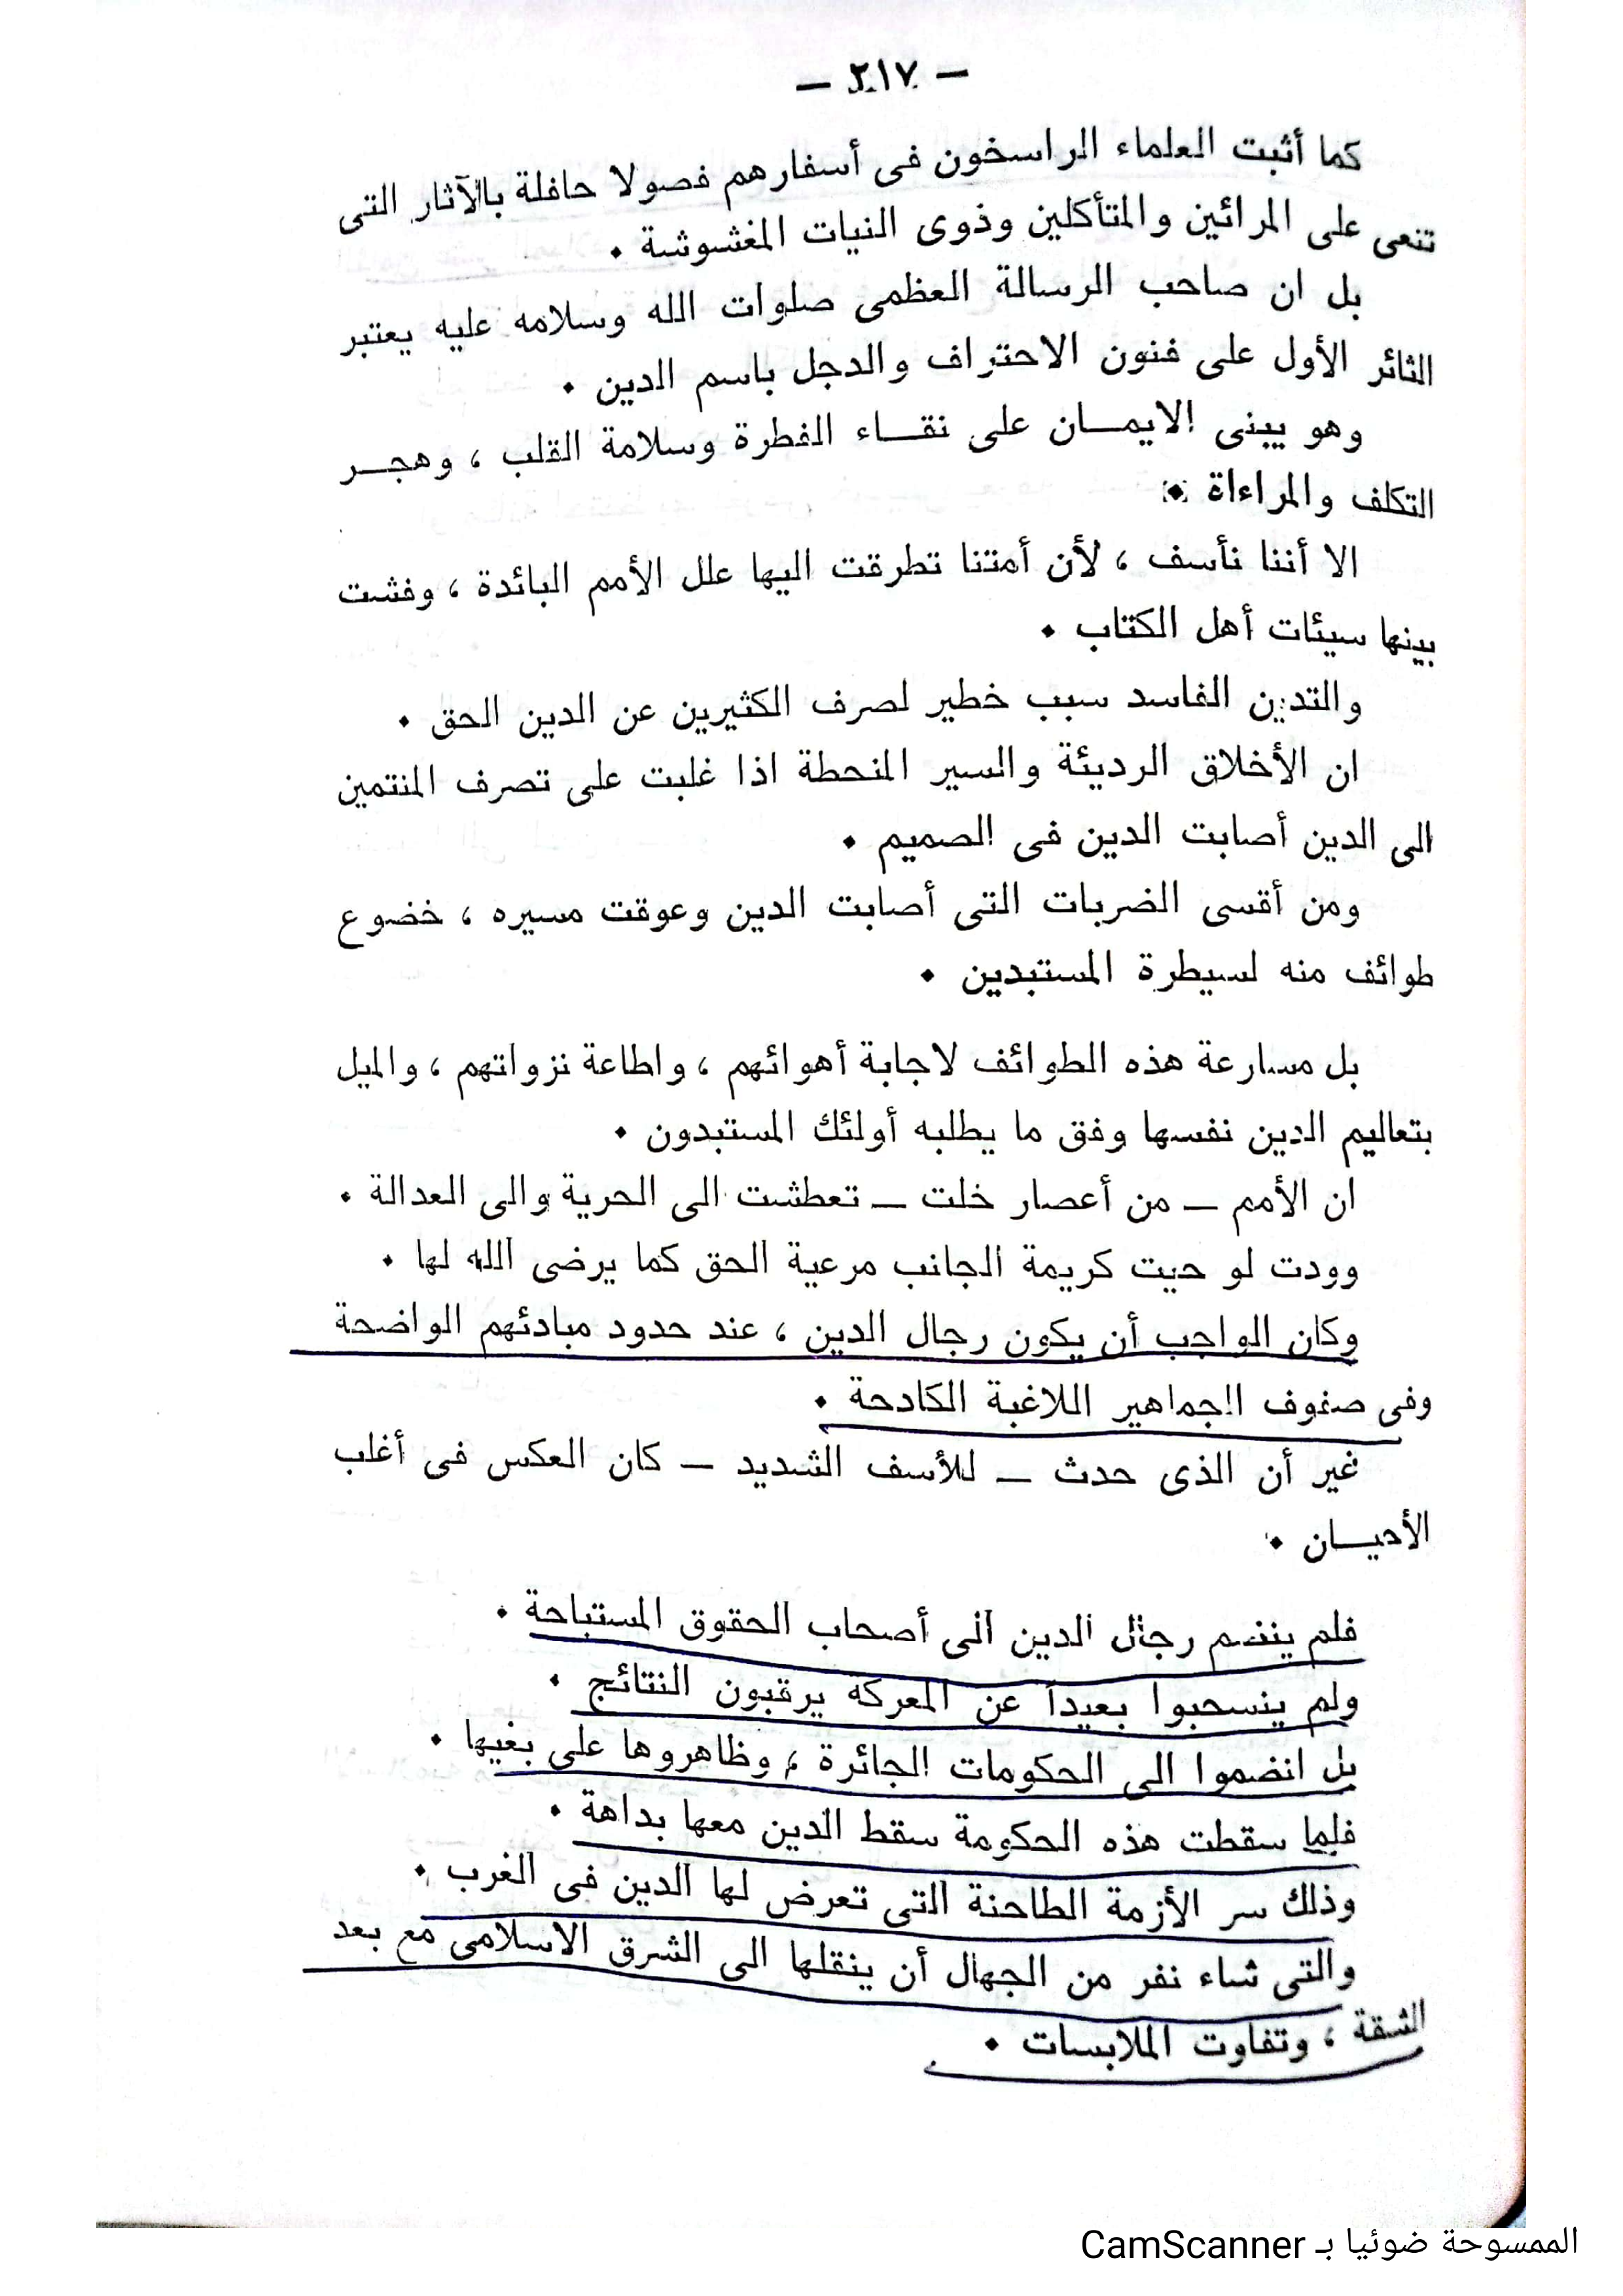 — ٢١٧ —
كما أثبت العلماء الراسخون فى أسفارهم فصولا حافلة بالآثار التى
تنعى على المرائين والمتأكلين وذوى النيات المغشوشة .
بل ان صاحب الرسالة العظمى صلوات الله وسلامه عليه يعتبر
الثائر الأول على فنون الاحتراف والدجل باسم الدين .
وهو يبنى الايمـــان على نقـــاء الفطرة وسلامة القلب ، وهجـــر
التكلف والمراءاة .
الا أننا نأسف ، لأن أمتنا تطرقت اليها علل الأمم البائدة ، وفشت
بينها سيئات أهل الكتاب .
والتدين الفاسد سبب خطير لصرف الكثيرين عن الدين الحق .
ان الأخلاق الرديئة والسير المنحطة اذا غلبت على تصرف المنتمين
الى الدين أصابت الدين فى الصميم .
ومن أقسى الضربات التى أصابت الدين وعوقت مسيره ، خضوع
طوائف منه لسيطرة المستبدين .
بل مسارعة هذه الطوائف لاجابة أهوائهم ، واطاعة نزواتهم ، والميل
بتعاليم الدين نفسها وفق ما يطلبه أولئك المستبدون .
ان الأمم — من أعصار خلت — تعطشت الى الحرية والى العدالة .
وودت لو حيت كريمة الجانب مرعية الحق كما يرضى الله لها .
وكان الواجب أن يكون رجال الدين ، عند حدود مبادئهم الواضحة
وفى صفوف الجماهير اللاغبة الكادحة .
غير أن الذى حدث — للأسف الشديد — كان العكس فى أغلب
الأحيـــان .
فلم ينضم رجال الدين الى أصحاب الحقوق المستباحة .
ولم ينسحبوا بعيداً عن المعركة يرقبون النتائج .
بل انضموا الى الحكومات الجائرة ، وظاهروها على بغيها .
فلما سقطت هذه الحكومة سقط الدين معها بداهة .
وذلك سر الأزمة الطاحنة التى تعرض لها الدين فى الغرب .
والتى شاء نفر من الجهال أن ينقلها الى الشرق الاسلامى مع بعد
الشقة ، وتفاوت الملابسات .
الممسوحة ضوئيا بـ CamScanner